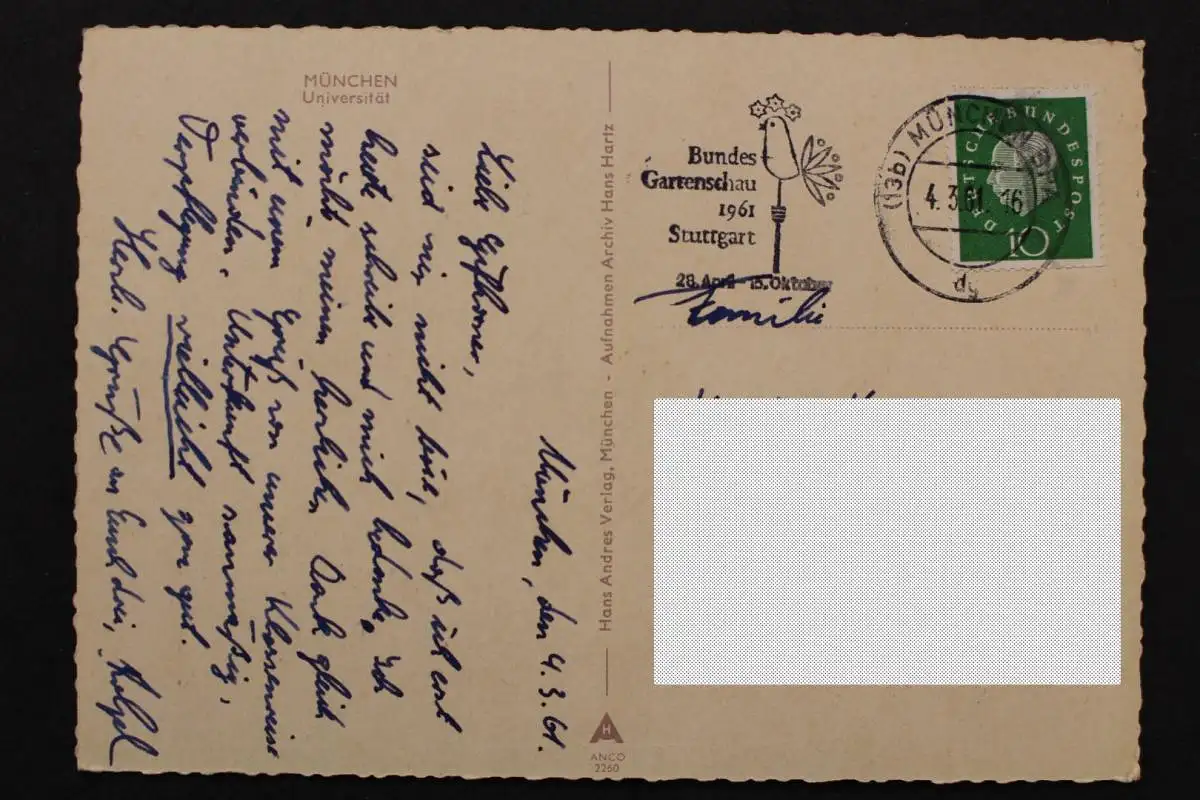 MÜNCHEN
Universität
München, den 4.3.61.
Liebe
seid mir nicht böse, daß ich erst
heute schreibe und mich bedanke. Ich
möchte meinen herzlichen Dank gleich
mit einem Gruß von unserer Klassenreise
verbinden. Unterkunft
Verpflegung vielleicht ganz gut.
Herzl. Grüße an Euch drei,
Hans Andres Verlag, München - Aufnahmen Archiv Hans Hartz
H
ANCO
2260
Bundes
Gartenschau
1961
Stuttgart
28. April - 15. Oktober
(13b) MÜNCHEN
4.3.61. 16
dg
DEUTSCHE BUNDESPOST
10
Familie